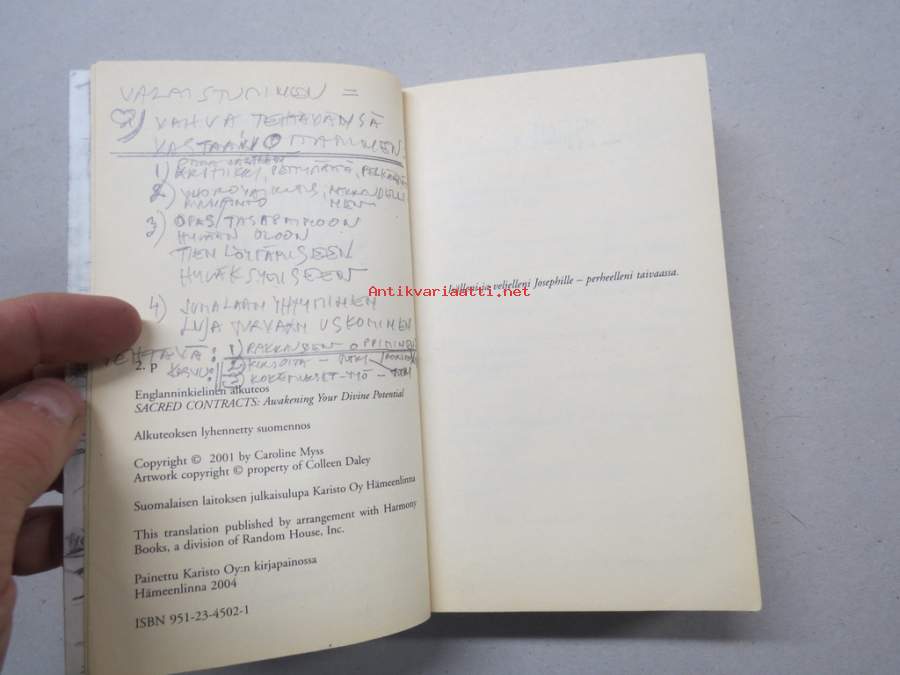 VALAISTUMINEN =
VAHVA TEHTÄVÄNSÄ
VASTAANOTTAMINEN
1) KRITIIKKI, PETTYMÄTTÄ, PELKÄÄMÄTTÄ
2)
3) OPAS/TASAPAINOON
HYVÄÄN OLOON
TIEN LÖYTÄMISEEN
HYVÄKSYMISEEN
4) JUMALAAN YHTYMINEN
LUJA TURVAAN USKOMINEN
TEHTÄVÄ: 1) RAKKAUDEN OPPIMINEN
KASVU: 2) KIRJOITA –
3) KOKEMUKSET – TYÖ –
2. p
Englanninkielinen alkuteos
SACRED CONTRACTS: Awakening Your Divine Potential
Alkuteoksen lyhennetty suomennos
Copyright © 2001 by Caroline Myss
Artwork copyright © property of Colleen Daley
Suomalaisen laitoksen julkaisulupa Karisto Oy Hämeenlinna
This translation published by arrangement with Harmony
Books, a division of Random House, Inc.
Painettu Karisto Oy:n kirjapainossa
Hämeenlinna 2004
ISBN 951-23-4502-1
veljelleni Josephille – perheelleni taivaassa.
Antikvariaatti.net